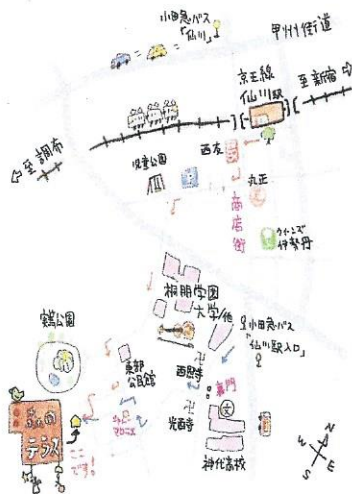 小田急バス
「仙川」
甲州街道
京王線
仙川駅
至新宿
至調布
児童公園
西友
丸正
商店街
クイーンズ
伊勢丹
桐朋学園
大学/他
小田急バス
「仙川駅入口」
鶏公園
東部
公民館
西照寺
文
光西寺
神代高校
テラス
ここ
です!
N
W
S
E